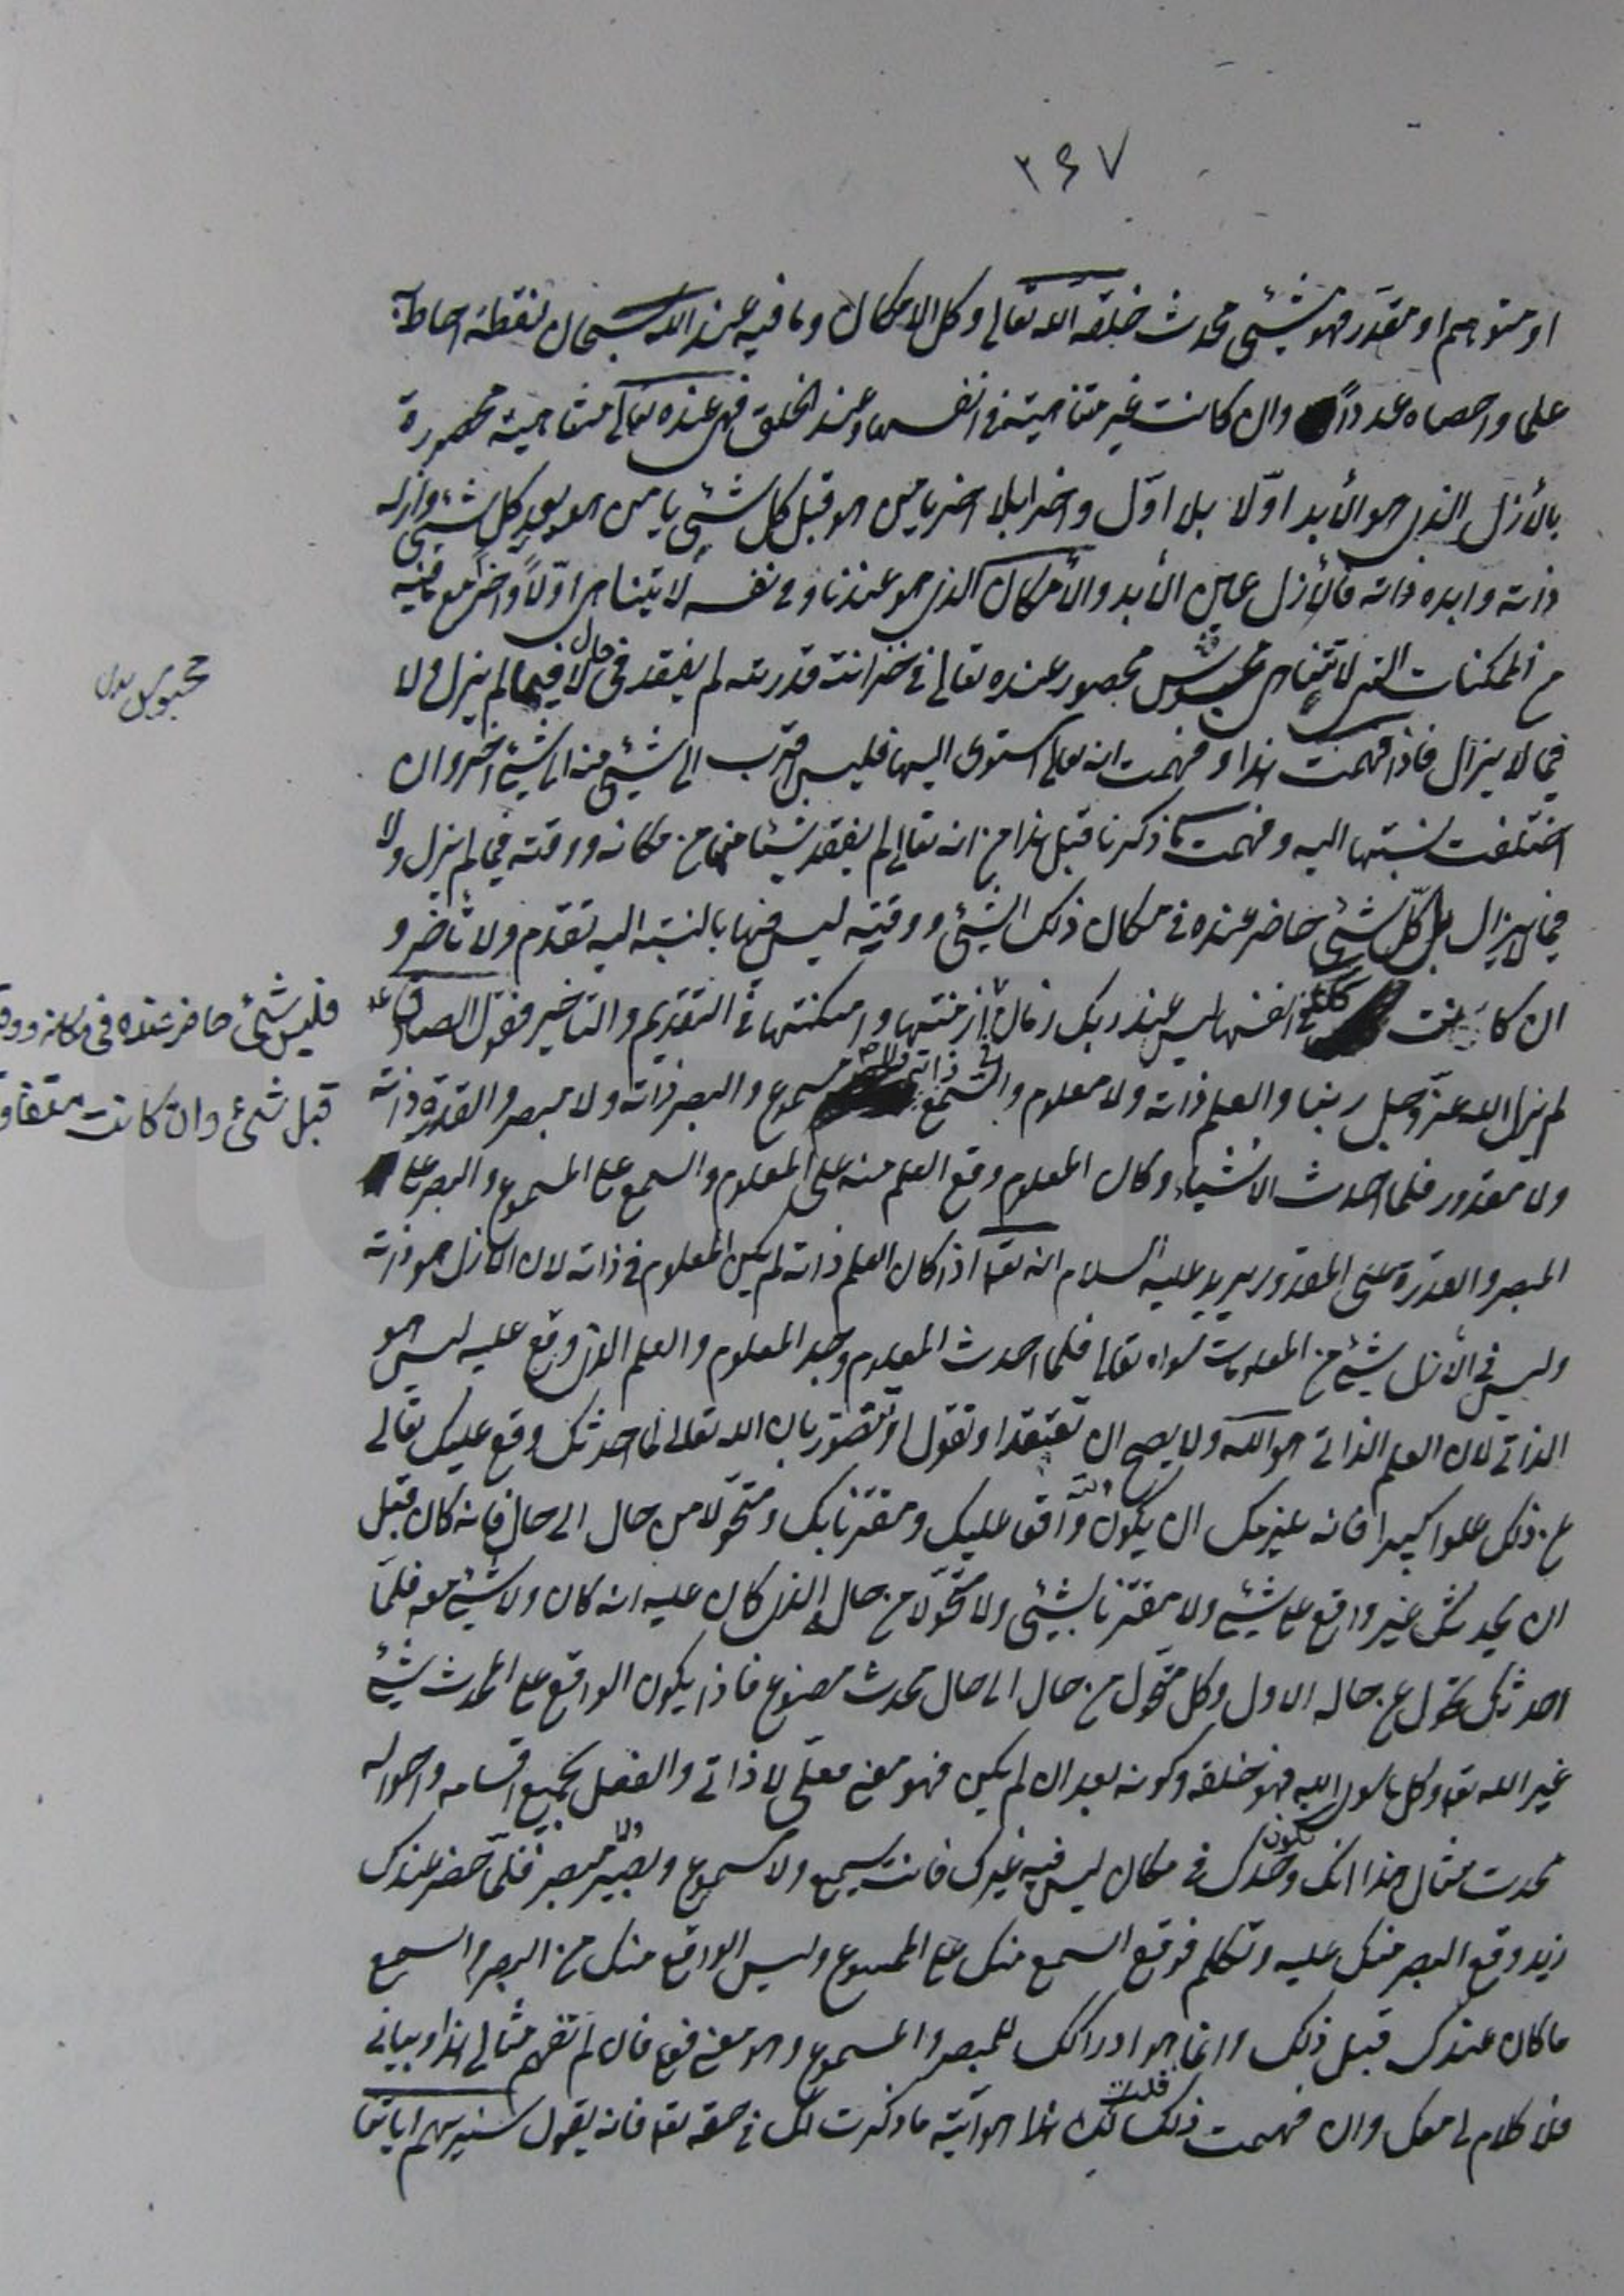 ٢٤٧
او متوهم او مقدر فهو شيئ محدث خلقه الله تعالى وكل الامكان وما فيه عند الله سبحانه نقطة احاط به
علما واحصاه عددا وان كانت غير متناهية في انفسها وعند الخلق فهي عنده تعالى متناهية محصورة
بالأزل الذي هو الأبد اوّلا بلا اوّل واخرا بلا اخر يا من هو قبل كل شيئ يا من هو بعد كل شيئ وازله
ذاته وابده ذاته فالأزل عين الأبد والأمكان الذي هو عندنا وفي نفسه لا يتناهى اوّلاً واخراً مع ما فيه
من الممكنات التي لا تتناهى محبوس محصور عنده تعالى في خزانة قدرته لم يفقد في حال لا فيما لم يزل ولا
فيما لا يزال فاذا فهمت هذا وفهمت انه تعالى استوى اليها فليس اقرب الى شيئ منه الى شيئ اخر وان
اختلفت نسبتها اليه وفهمت ما ذكرنا قبل هذا من انه تعالى لم يفقد شيئا منها من مكانه ووقته فيما لم يزل ولا
فيما لايزال بل كل شيئ حاضر عنده في مكان ذلك الشيئ ووقته ليس فيها بالنسبة اليه تقدم ولا تأخر و
ان كانت في انفسها ليس عند ربك زمان ازمنتها وامكنتها في التقديم والتاخير فقول الصادق ع
لم يزل الله عز وجل ربنا والعلم ذاته ولا معلوم والسمع ذاته ولا مسموع والبصر ذاته ولا مبصر والقدرة ذاته
ولا مقدور فلما احدث الاشياء وكان المعلوم وقع العلم منه على المعلوم والسمع على المسموع والبصر على
المبصر والقدرة على المقدور يريد عليه السلام انه تعه اذا كان العلم ذاته لم يكن المعلوم في ذاته لان الازل هو ذاته
وليس في الأزل شيئ من المعلومات سواه تعالى فلما احدث المعلوم وجد المعلوم والعلم الذي وقع عليه ليس هو
الذاتي لان العلم الذاتي هو الله ولا يصح ان تعتقد او تقول او تتصور بان الله تعالى لما احدثك وقع عليك تعالى
عن ذلك علوا كبيرا فانه غيرمك ان يكون واقعا عليك ومقترنا بك ومتحولا من حال الى حال فانه كان قبل
ان يحدثك غير واقع على شيئ ولا مقترنا بشيئ ولا متحولا من حاله الذي كان عليه انه كان ولا شيئ معه فلما
احدثك تحول عن حاله الاول وكل متحول من حال الى حال محدث مصنوع فاذا يكون الواقع على المحدث شيئ
غير الله تعه وكل ما سوى الله فهو خلقه وكونه بعد ان لم يكن فهو معنى فعلي لا ذاتي والفعل بجميع اقسامه واحواله
محدث مثال هذا انك تكون وحدك في مكان ليس فيه غيرك فانت سميع ولا مسموع وبصير ولا مبصر فلما حضر عندك
زيد وقع البصر منك عليه وتكلم فوقع السمع منك على المسموع وليس الواقع منك من البصر والسمع
ما كان عندك قبل ذلك وانما هو ادراكك للمبصر والمسموع وهو معنى فعلي فان لم تفهم مثالي هذا وبياني
فلا كلام لي معك وان فهمت ذلك قلت لك هذا هو آية ما ذكرت لك في حقه تعه فانه يقول سنريهم اياتنا
محبوس بدل
فليس شيئ حاضر عنده في مكانه ووق
قبل شيئ وان كانت متفاو